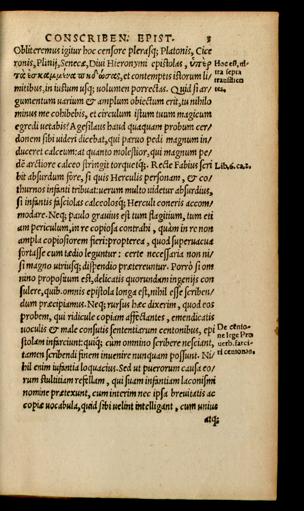 CONSCRIBEN. EPIST. 3
Obliteremus igitur hoc censore plerasq; Platonis, Cice
ronis, Plinij, Senecæ, Diui Hieronymi epistolas, ὑπὲρ
τὰ ἐσκαμμένα πηδώσας, et contemptis istorum li
mitibus, in iustum usq; uolumen porrectas. Quid si ar
gumentum uarium & amplum obiectum erit, tu nihilo
minus me cohibebis, et circulum istum tuum magicum
egredi uetabis? Agesilaus haud quaquam probum cer
donem sibi uideri dicebat, qui paruo pedi magnum in/
duceret calceum: at quanto molestior, qui magnum pe
dē arctiore calceo stringit torquetq;. Recte Fabius scri
bit absurdum fore, si quis Herculis personam, & co/
thurnos infanti tribuat: uerum multo uidetur absurdius,
si infantis fasciolas calceolosq; Herculi coneris accom/
modare. Neq; paulo grauius est tum flagitium, tum eti
am periculum, in re copiosa contrahi, quàm in re non
ampla copiosiorem fieri: propterea, quod superuacua
fortasse cum tædio leguntur: certe necessaria non ni/
si magno utriusq; dispendio prætereuntur. Porrò si om
nino propositum est, delicatis quorundam ingenijs con
sulere, quib. omnis epistola longa est, nihil esse scriben/
dum præcipiamus. Neq; rursus hæc dixerim, quod eos
probem, qui ridicule copiam affectantes, emendicatis
uoculis & male consutis sententiarum centonibus, epi
stolam infarciunt: quiq; cum omnino scribere nesciant,
tamen scribendi finem inuenire nunquam possunt. Ni/
hil enim infantia loquacius. Sed ut puerorum causa eo/
rum stultitiam refellam, qui suam infantiam laconismi
nomine prætexunt, cum interim nec ipsa breuitatis ac
copiæ uocabula, quid sibi uelint intelligant, cum unius
atq;
Hoc est, ul
tra septa
transilien
tes.
Lib. 6. ca. 2.
De cento/
ne lege Pro
uerb. farci/
ri centonas.